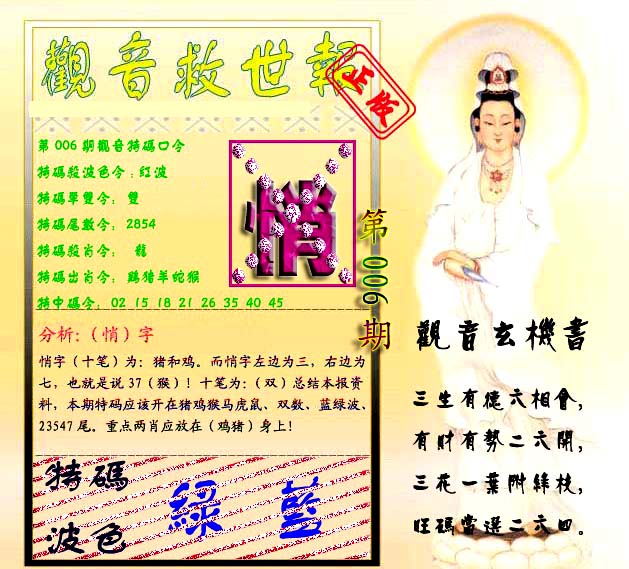 觀音救世報
正版
第 006 期觀音特碼口令
特碼殺波色令:紅波
特碼單雙令: 雙
特碼尾數令: 2854
特碼殺肖令: 龍
特碼出肖令: 鷄猪羊蛇猴
特中碼令: 02 15 18 21 26 35 40 45
悄
第006期
分析:(悄)字
悄字(十笔)为:猪和鸡。而悄字左边为三,右边为
七,也就是说 37(猴)!十笔为:(双)总结本报资
料,本期特码应该开在猪鸡猴马虎鼠、双数、蓝绿波、
23547 尾。重点两肖应放在(鸡猪)身上!
特碼
波色
綠 藍
觀音玄機書
三生有德六相會,
有財有勢二六開,
三花一葉附絲枝,
旺碼當選二六四。